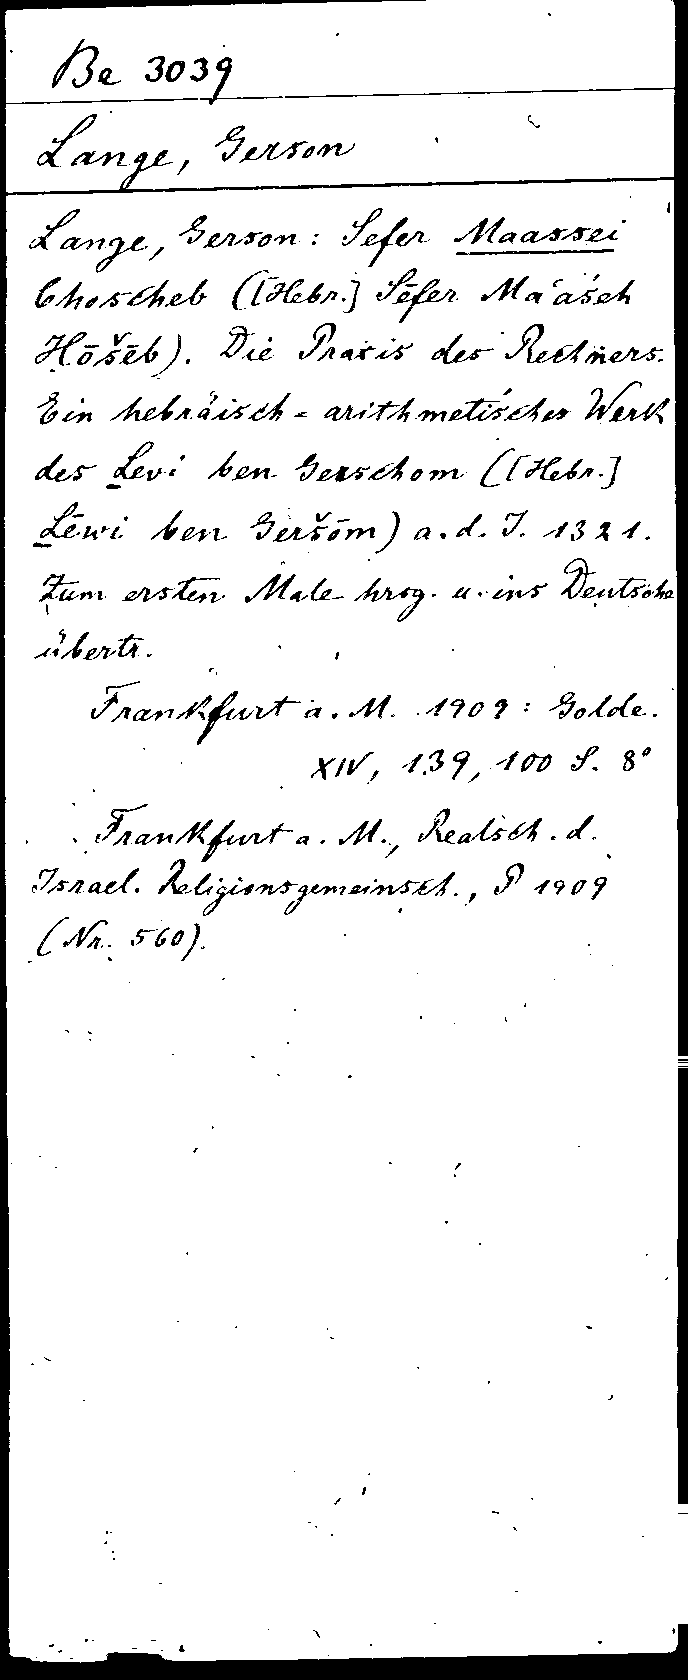 Be 3039
Lange, Gerson
Lange, Gerson: Sefer Maassei
Choscheb ([Hebr.] Sēfer Ma'aśeh
Ḥōšēb). Die Praxis des Rechners.
Ein hebräisch-arithmetisches Werk
des Levi ben Gerschom ([Hebr.]
Lēwi ben Geršōm) a. d. J. 1321.
Zum ersten Male hrsg. u. ins Deutsche
übertr.
Frankfurt a. M. 1909: Golde.
XIV, 139, 100 S. 8°
Frankfurt a. M., Realsch. d.
Israel. Religionsgemeinsch., P 1909
(Nr. 560).